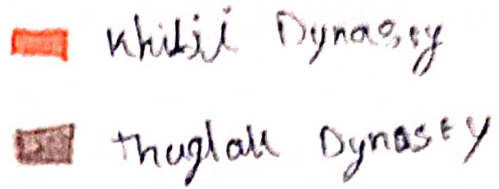 Khilji Dynasty
Thuglak Dynasty